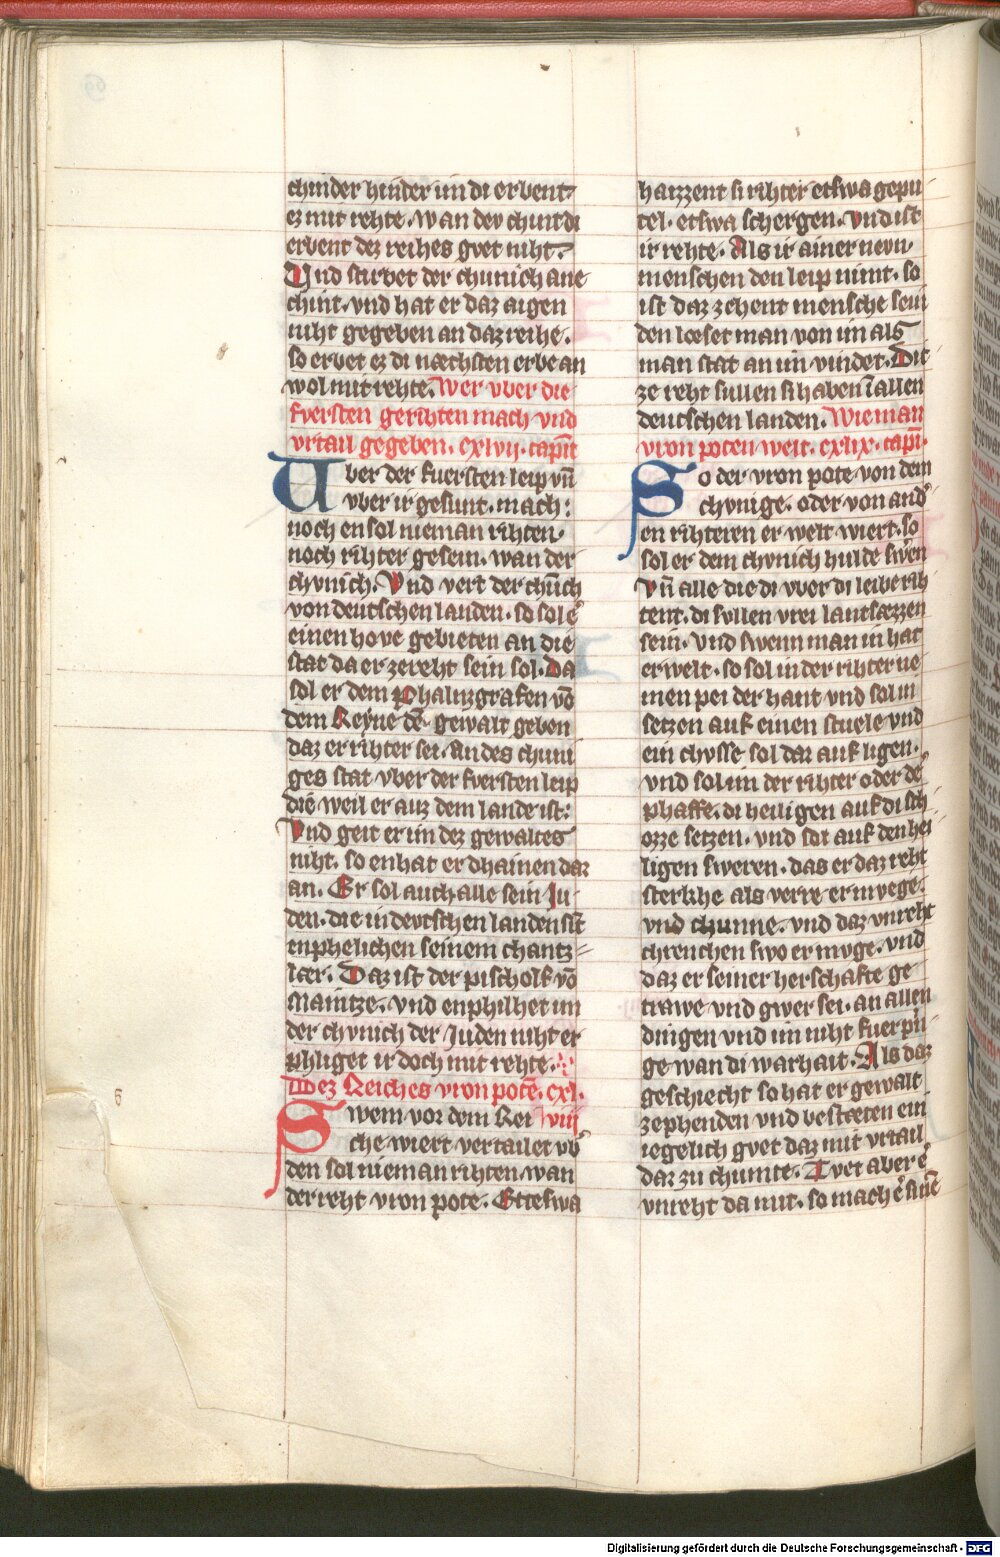 chinder hinder im di erbent
ez mit rehte. wan dev chint di
erbent dez reihes gvet niht.
Und stirbet der chunich ane
chint. vnd hat er daz aigen
niht gegeben an daz reihe.
so erbet ez di næchsten erbe an
wol mit rehte. Wer vber die
fversten gerihten mach vnd
vrtail gegeben. cxlvii. capit
Uber der fuersten leip vn̄
vber ir gesunt. mach:
noch ensol nieman rihten.
noch rihter gesein. wan der
chvnich. Vnd vert der chunich
von deutschen landen. so sol er
einen hove gebieten an die
stat da er zereht sein sol. Da
sol er dem Phalnzgrafen võ
dem Reyne den gewalt geben
daz er rihter sei. an des chuni
ges stat vber der fversten leip
die weil er auz dem lande ist:
Vnd geit er im dez gewaltes
niht. so enhat er dhainen dar
an. Er sol auch alle sein Ju
den. die in devtschen landen sīt
enphelichen seinem chantz
lær. Daz ist der pischolf võ
Maintze. vnd enphilhet im
der chvnich der Juden niht er
phliget ir doch mit rehte.
Dez Reiches vron potē. cxl.
Swem vor dem Rei viii
che wiert vertailet vb᾽
den sol nieman rihten. wan
der reht vron pote. Etteswa
haizzent si rihter etswa gepu
tel. etswa schergen. Vnd ist
ir rehte. Als ir ainer nevn
menschen den leip nimt. so
ist daz zehent mensche sein
den lœset man von im als
man stat an im vindet. Dit
ze reht sullen si haben ī allen
deutschen landen. Wie man
vron poten welt. cxlix. capi.
So der vron pote von dem
chvnige. oder von and᾽
en rihteren er welt wiert. so
sol er dem chvnich hulde swēn
Vn̄ alle die di vber di leibe rih
tent. di svllen vrei lantsæzzen
sein. vnd swenn man in hat
erwelt. so sol in der rihter ne
men pei der hant vnd sol in
setzen auf einen stuele vnd
ein chvsse sol dar auf ligen.
vnd sol im der rihter oder de᾽
phaffe. di heiligen auf di sch
ozze setzen. vnd sol auf den hei
ligen sweren. das er daz reht
sterkhe als verre er mvege.
vnd chunne. vnd daz vnreht
chrenchen swo er mvge. vnd
daz er seiner herschafte ge
trawe vnd gwer sei. an allen
dingen vnd im niht fuer prin
ge wan di warhait. Als daz
geschiecht so hat er gewalt
zephenden vnd bestæten ein
iegelich gvet daz mit vrtail
dar zu chumte. Tvet aber e᾽
vnreht da mit. so mach e᾽ sinē
6
Digitalisierung gefördert durch die Deutsche Forschungsgemeinschaft - DFG